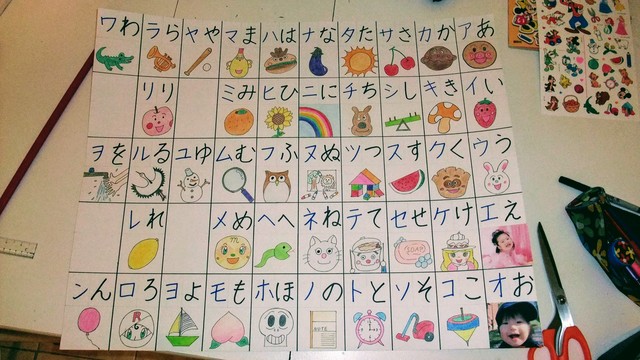 ワわ ラら ヤや マま ハは ナな タた サさ カか アあ
リり ミみ ヒひ ニに チち シし キき イい
ヲを ルる ユゆ ムむ フふ ヌぬ ツつ スす クく ウう
レれ メめ ヘへ ネね テて セせ ケけ エえ
SOAP
ンん ロろ ヨよ モも ホほ ノの トと ソそ コこ オお
NOTE